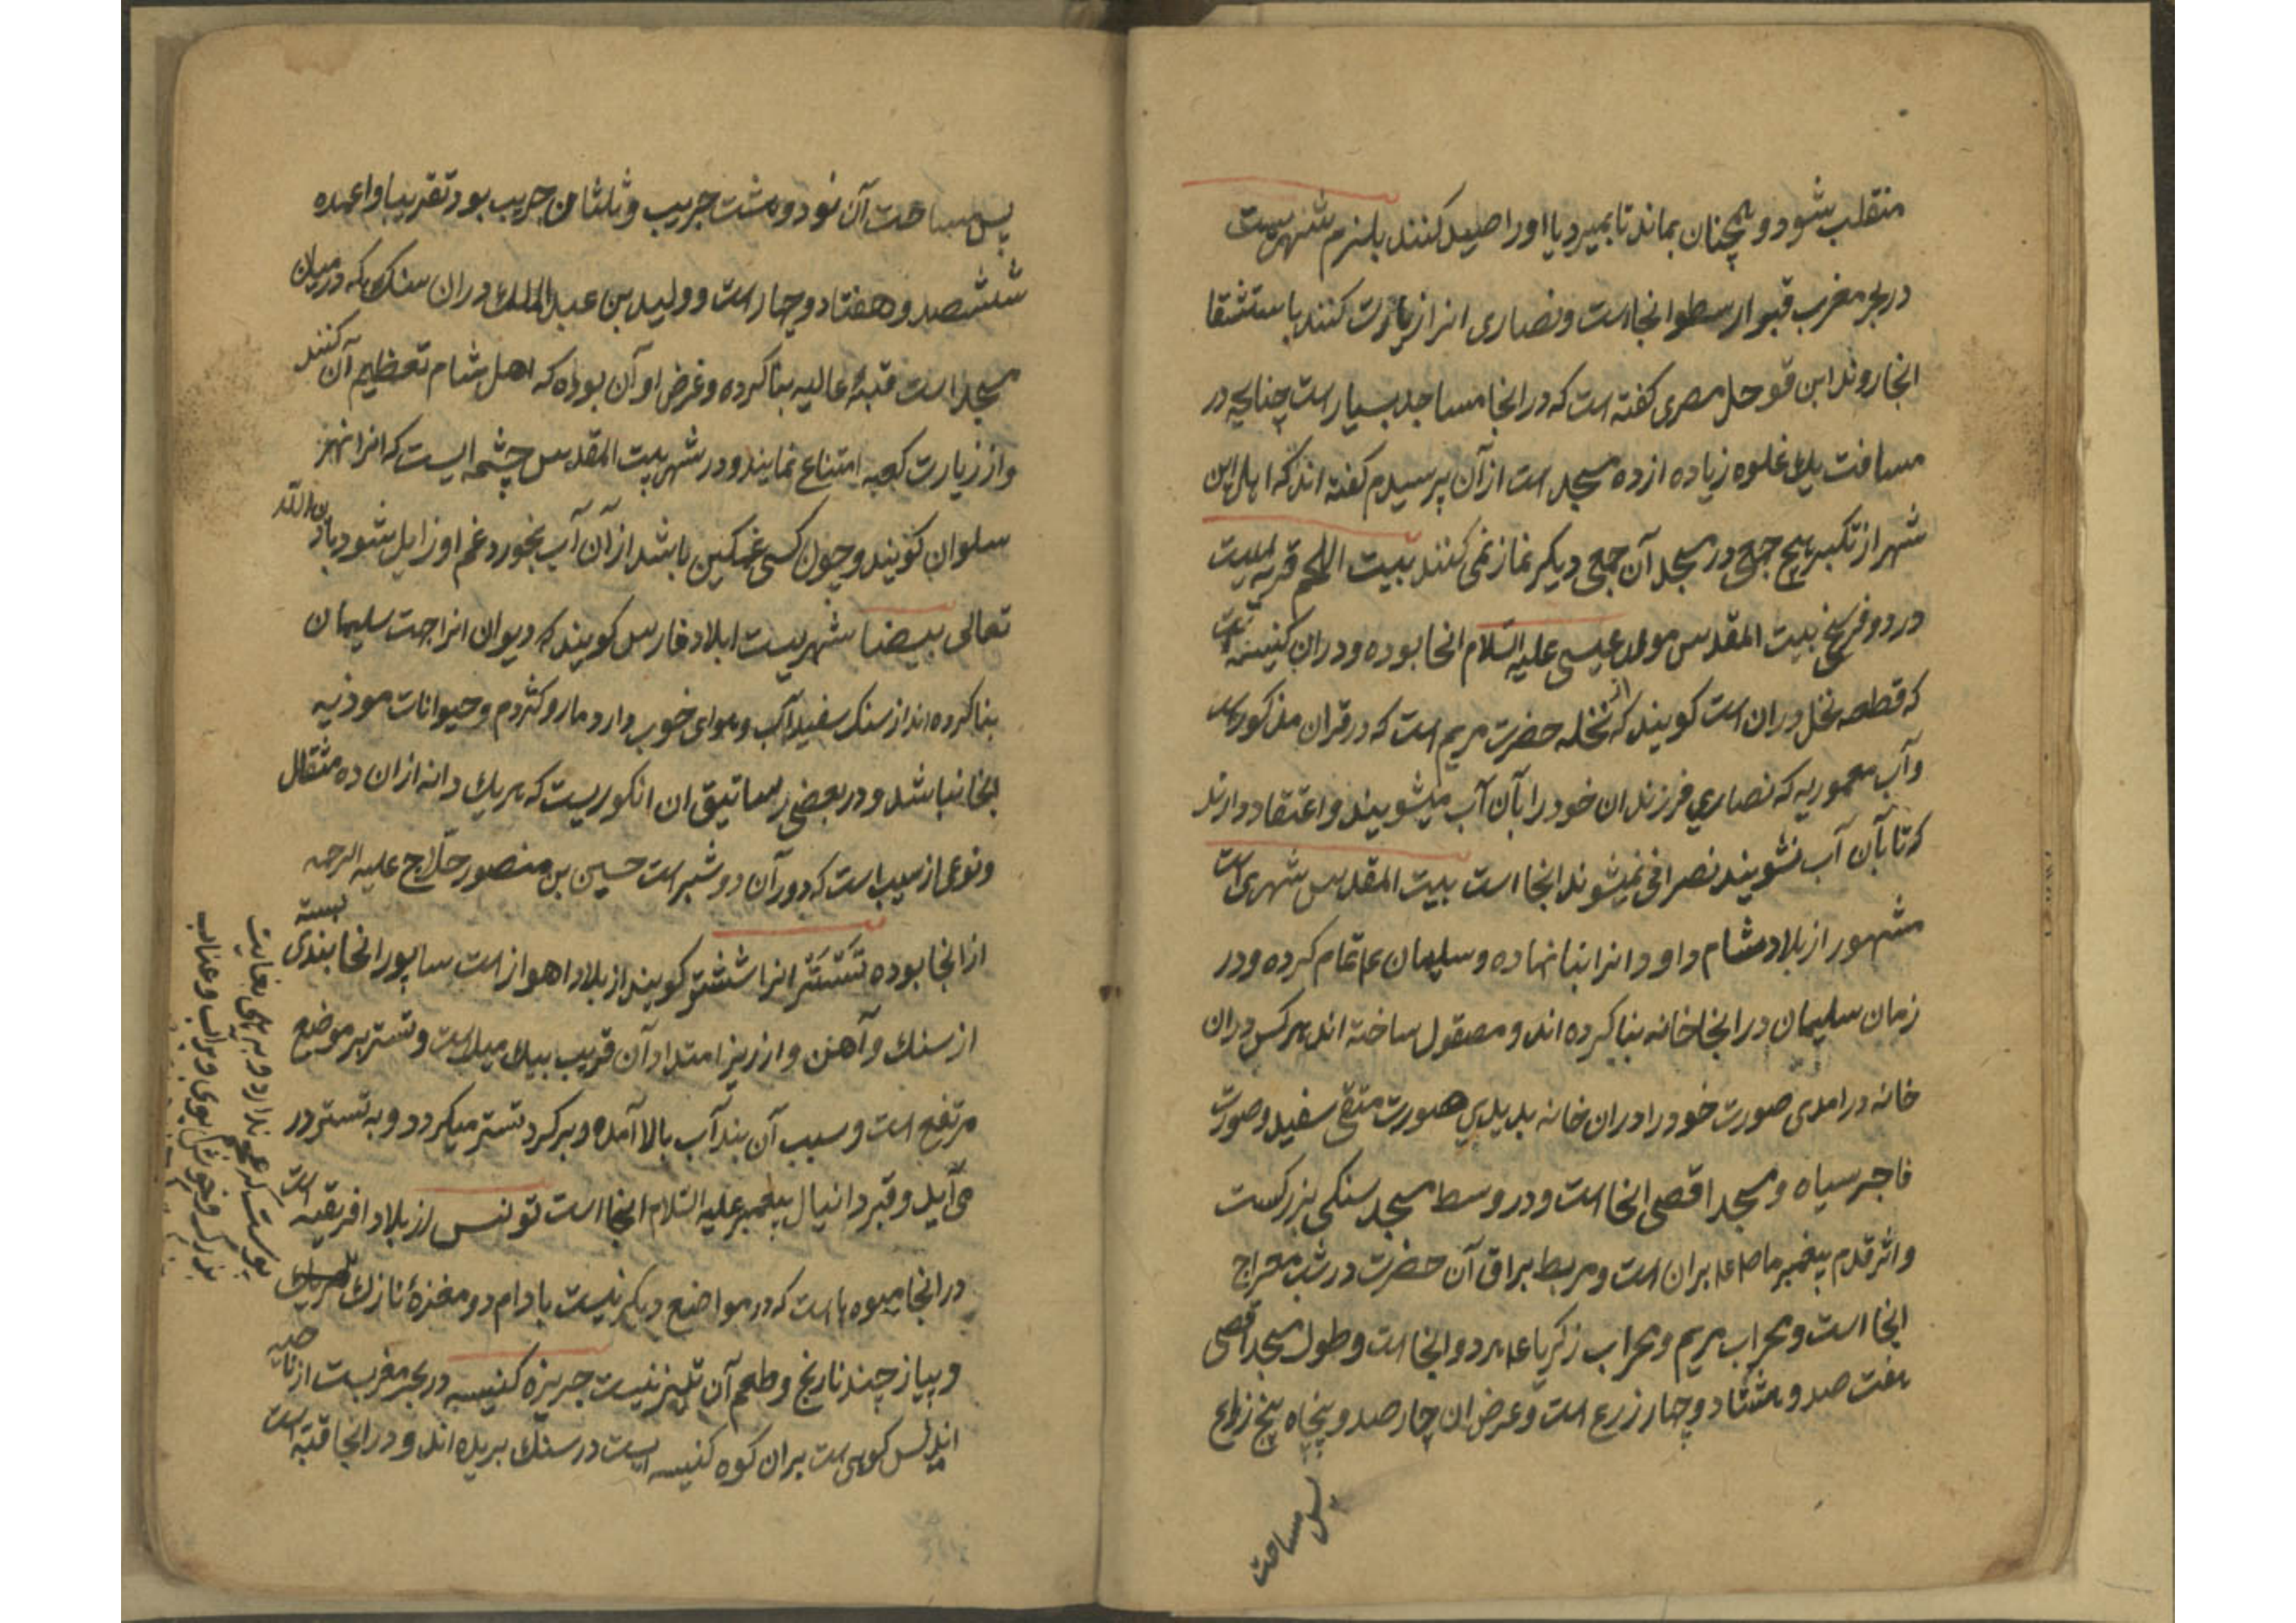 منقلب شود و همچنان بماند تا بمیرد یا او را صید کنند بلنرم شهریست
در بحر مغرب قبر ارسطو انجا است و نصاری انرا زیارت کنند باستشقا
انجا روند ابن قوحل مصری کفته است که در انجا مساجد بسیار است چنانچه در
مسافت یک غلوه زیاده از ده مسجد است از آن پرسیدم کفته اند که اهل این
شهر از تکبر هیچ جمعی در مسجد آن جمعی دیکر نماز نمی کنند بیت اللحم قریه ایست
در دو فرسخی بیت المقدس مولد عیسی علیه السلام انجا بوده و دران کنیسه ایست
که قطعه نخل دران است کویند که از نخله حضرت مریم است که در قران مذکور است
و آب معموریه که نصاری فرزندان خود را بآن آب میشویند و اعتقاد دارند
که تا بآن آب نشویند نصرانی نمیشوند انجا است بیت المقدس شهری است
مشهور از بلاد شام داود انرا بنا نهاده و سلیمان عم تمام کرده و در
زمان سلیمان در انجا خانه بنا کرده اند و مصقول ساخته اند هر کس دران
خانه درامدی صورت خود را دران خانه بدیدی صورت متقی سفید و صورت
فاجر سیاه و مسجد اقصی انجا است و در وسط مسجد سنکی بزرکست
و اثر قدم پیغمبر ما صلعم بران است و مربط براق آن حضرت در شب معراج
انجا است و محراب مریم و محراب زکریا عم هر دو انجا است و طول مسجد اقصی
هفت صد و هشتاد و چهار زرع است و عرض ان چار صد و پنجاه پنج زراع
پس مساحت
پس مساحت آن نود و هشت جریب و ثلثا من جریب بود تقریبا و اعمده
ششصد و هفتاد و چهار است و ولید بن عبد الملک دران سنک که در میان
مسجد است قبهٔ عالیه بنا کرده و غرض او آن بوده که اهل شام تعظیم آن کنند
و از زیارت کعبه امتناع نمایند و در شهر بیت المقدس چشمه ایست که انرا نهر
سلوان کویند و چون کسی غمکین باشد از آن آب بخورد غم او زایل شود باذن الله
تعالی بیضا شهریست ابلاد فارس کویند که دیوان انرا جهت سلیمان
بنا کرده اند از سنک سفید آب و هوای خوب دارد مار و کثردم و حیوانات موذیه
انجا نباشد و در بعضی رساتیق ان انکوریست که هر یک دانه ازان ده مثقال
و نوعی از سیب است که دور آن دو شبر است حسین بن منصور حلاج علیه الرحمه
از انجا بوده تستر انرا ششتر کویند از بلاد اهواز است ساپور انجا بندی بسته
از سنک و آهن و ارزیز امتداد آن قریب بیک میل است و تستر بر موضع
مرتفع است و سبب آن بند آب بالا آمده و بر کرد تستر میکردد و به تستر در
می آید و قبر دانیال پیغمبر علیه السلام انجا است تونس از بلاد افریقیه است
در انجا میوه ها است که در مواضع دیکر نیست بادام دو مغزهٔ نازک
و پیاز چند نارنج و طعم آن تیز نیست جزیزه کنیسه در بحر مغربست از ناحیه
اندلس کوهی است بران کوه کنیسه ایست در سنک بریده اند و در انجا قبه است